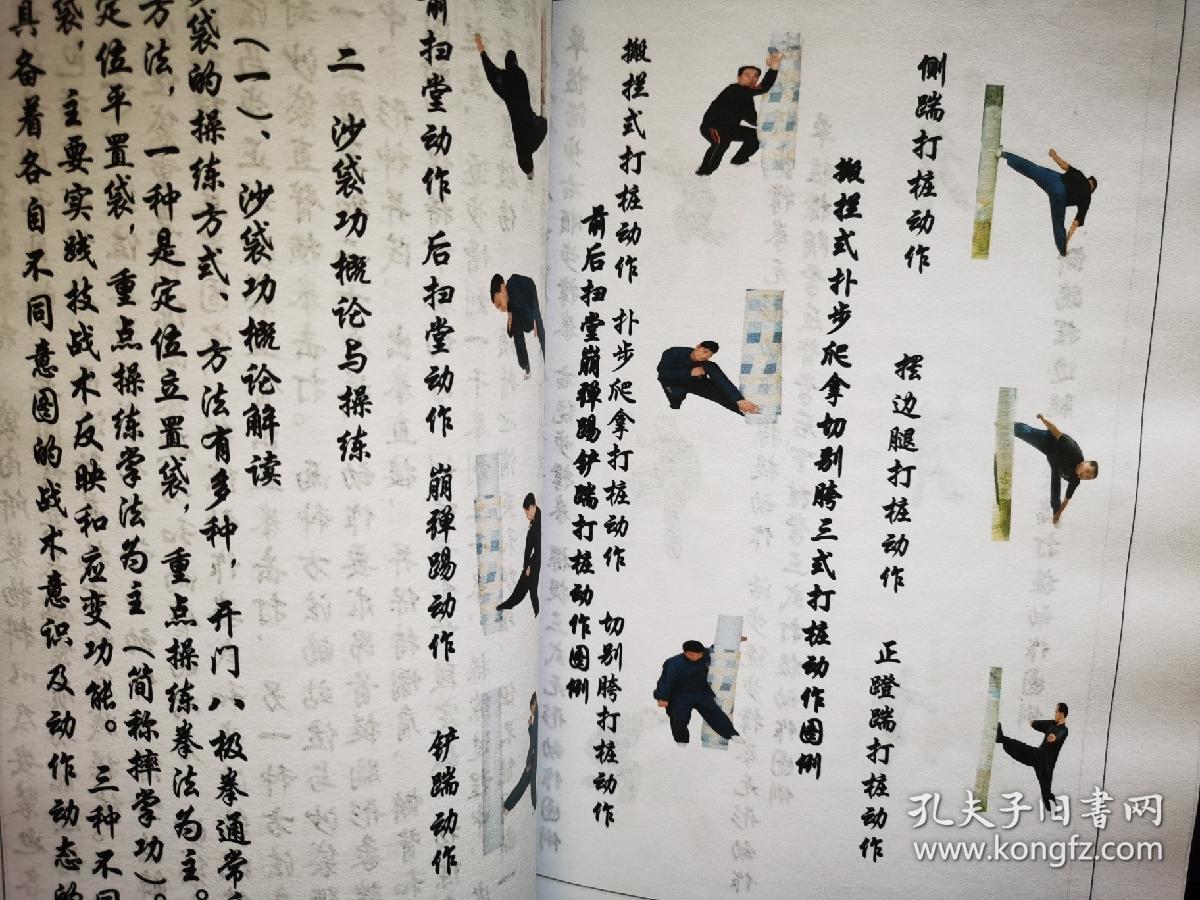 侧踹打桩动作 摆边腿打桩动作 正蹬踹打桩动作
搬拦式扑步爬拿切别胯三式打桩动作图例
搬拦式打桩动作 扑步爬拿打桩动作 切别胯打桩动作
前后扫堂崩弹踢铲踹打桩动作图例
前扫堂动作 后扫堂动作 崩弹踢动作 铲踹动作
二 沙袋功概论与操练
（一）、沙袋功概论解读
袋的操练方式、方法有多种，开门八极拳通常
方法，一种是定位立置袋，重点操练拳法为主。
定位平置袋，重点操练掌法为主（简称摔掌功）。
袋，主要实践技战术反映和应变功能。三种不同
具备着各自不同意图的战术意识及动作动态的
孔夫子旧书网
www.kongfz.com